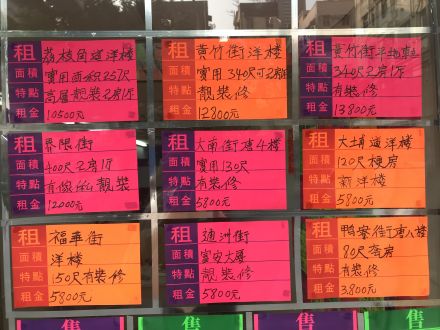 租 荔枝角道洋樓
面積 實用面积257尺
特點 高層靚裝2房1厅
租金 10500元
租 黃竹街洋樓
面積 實用340尺可2房
特點 靚裝修
租金 12800元
租 黃竹街
面積 340尺2房1厅
特點 有裝修
租金 13800元
租 界限街
面積 400尺2房1厅
特點 靚裝
租金 12000元
租 大南街唐4樓
面積 實用130尺
特點 有裝修
租金 5800元
租 大埔道洋樓
面積 120尺梗房
特點 新洋樓
租金 5800元
租 福華街
面積 洋樓
特點 150尺有裝修
租金 5800元
租 通洲街
面積 富安大廈
特點 靚裝修
租金 5800元
租 鴨寮街唐八樓
面積 80尺套房
特點 有裝修
租金 3,800元
售
售
售